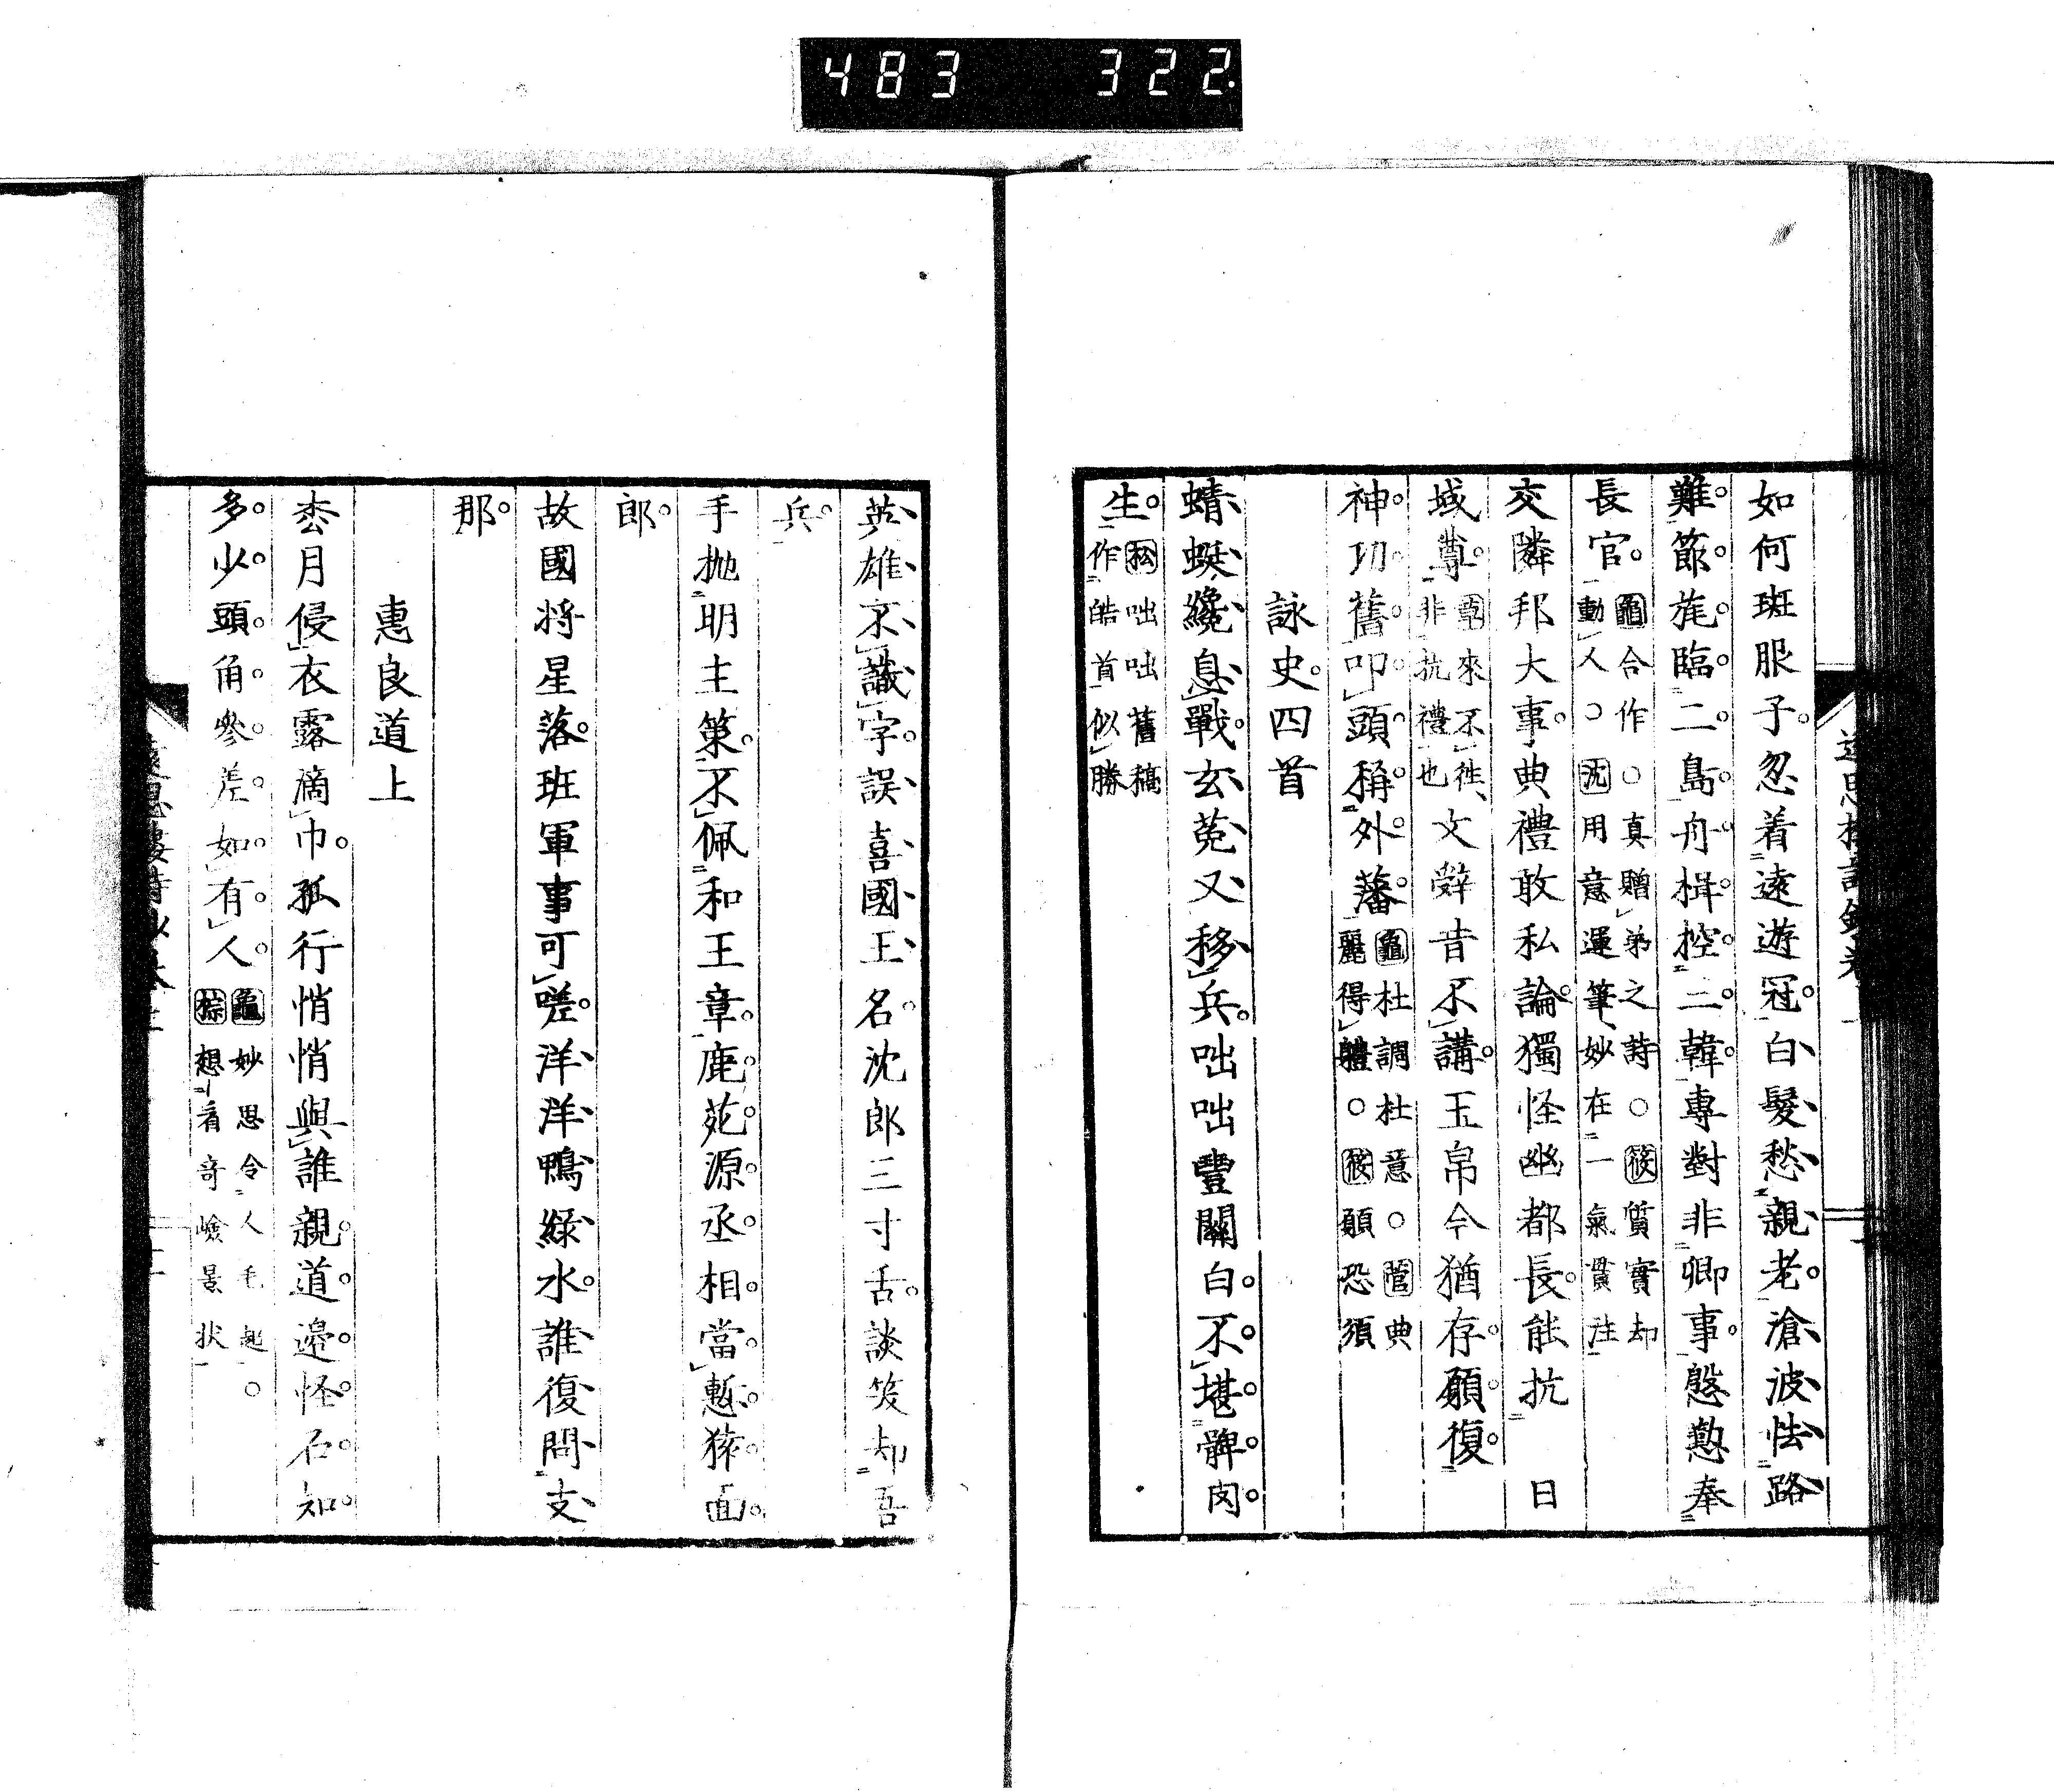 483 322
如何斑服子忽着遠遊冠白髮愁親老滄波怯路
難節旄臨二島舟楫控三韓專對非卿事慇懃奉
長官
龜合作○真贈弟之詩○筱質實却
動人○沈用意運筆妙在一氣貫注
交隣邦大事典禮敢私論獨怪幽都長能抗 日
域尊
來不往
非抗禮也
文辭昔不講玉帛今猶存願復
神功舊叩頭稱外藩
龜杜調杜意○菅典
麗得體○筱願恐須
詠史四首
蜻蜓纔息戰玄菟又移兵咄咄豐關白不堪髀肉
生
松咄咄舊稿
作皓首似勝
英雄不識字誤喜國王名沈郎三寸舌談笑却吾
兵
手抛明主策不佩和王章鹿苑源丞相當慙猿面
郎
故國将星落班軍事可嗟洋洋鴨綠水誰復問支
那
惠良道上
枩月侵衣露滴巾孤行悄悄與誰親道邊怪石知
多少頭角參差如有人
龜妙思令人毛起○
棕想看奇嶮景状